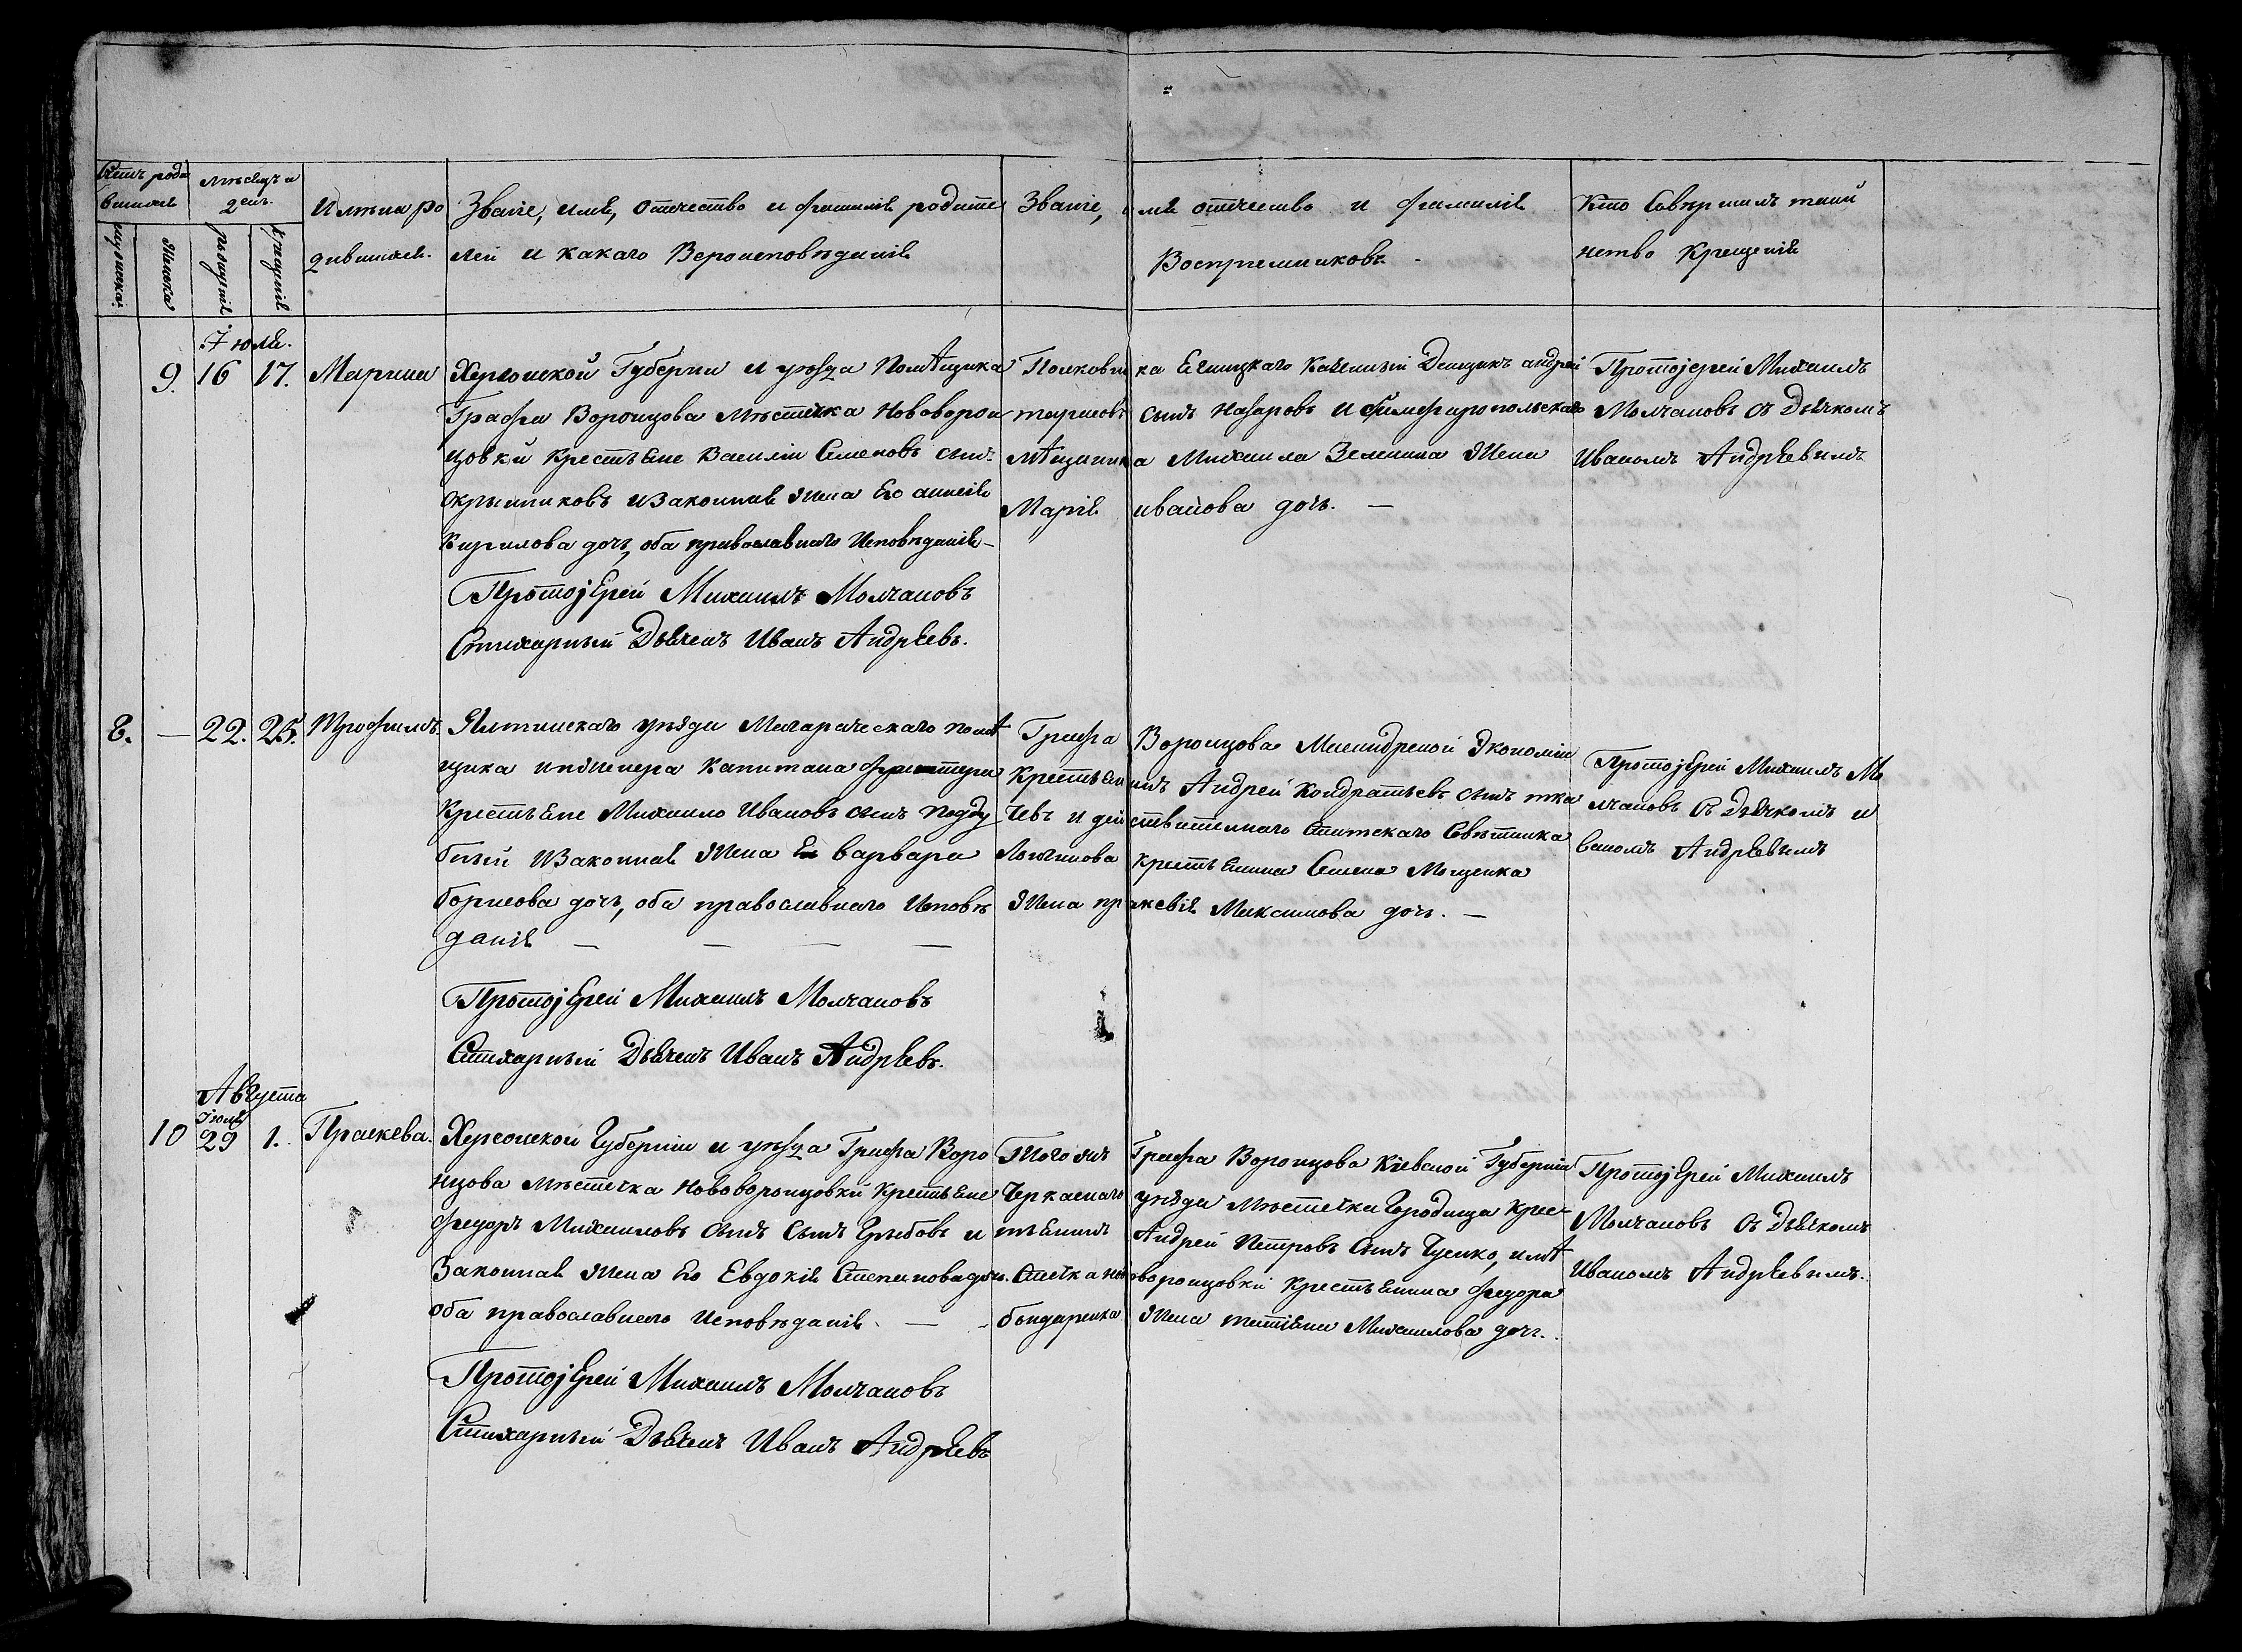 Счетъ роди
вшихся
мѣсяцъ и
день.
Имяна ро
дившихся.
Званіе, имя, отчество и фамилія родите
лей и какаго Вероисповѣданія
Званіе, имя отчество и фамилія
Воспріемниковъ
Кто Совершилъ таин
нство Крещенія
мужеска
женска
рожденія
крещенія
Іюля.
9. 16 17. Марина
Херсонской Губерни и уѣзда Помѣщика
Графа Воронцова мѣстечка Нововорон
цовки Крестьяне Василій Семеновъ сынъ
и Законная жена Его
Кирилова дочь, оба православнаго Исповѣданія
Протоіерей Михаилъ Молчановъ
Стихарный Дьячекъ Иванъ Андрѣевъ.
Полковника Денщикъ андрей
сынъ Назаровъ и Симферопольскаго
мѣщанина Михаила Зеленина Жена
Марія иванова дочь.
Протоіерей Михаилъ
Молчановъ съ Дьячкомъ
Иваномъ Андрѣевымъ
8. — 22. 25. Трофимъ.
Ялтинскаго уѣзда Магараческаго помѣ
щика инженера Капитана
Крестьяне Михаило Ивановъ сынъ Подду
бный и Законная Жена Ев варвара
борисова дочь, оба православнаго Исповѣ
данія
Протоіерей Михаилъ Молчановъ
Стихарный Дьячекъ Иванъ Андрѣевъ.
Графа Воронцова Экономіи
Крестьянинъ Андрей Кондратьевъ сынъ тка
чевъ и действителнаго Статскаго Совѣтника
Лонгинова крестьянина Семена Мощенка
Жена праксевія Максимова дочь.
Протоіерей Михаилъ Мо
лчановъ съ Дьячкомъ и
ваномъ Андрѣевымъ
Августа
Іюля
10 29 1. Праскева.
Херсонской Губерніи и уѣзда Графа Воро
нцова мѣстечка Нововоронцовки Крестьяне
Федоръ Михаиловъ сынъ Сынъ Грыбовъ и
Законная жена Его Евдокія Степанова дочь.
оба православнаго Исповѣданія.
Протоіерей Михаилъ Молчановъ
Стихарный Дьячекъ Иванъ Андрѣевъ
Того жъ Графа Воронцова Кіевской Губерніи
Черкаскаго уѣзда мѣстечка Городища Крес
тьянинъ Андрей Петровъ Сынъ Гуенко, имѣ
нововоронцовки Крестьянина федора
бондаренка Жена татіяна Михаилова дочь.
Протоіерей Михаилъ
Молчановъ съ Дьячкомъ
Иваномъ Андрѣевымъ.